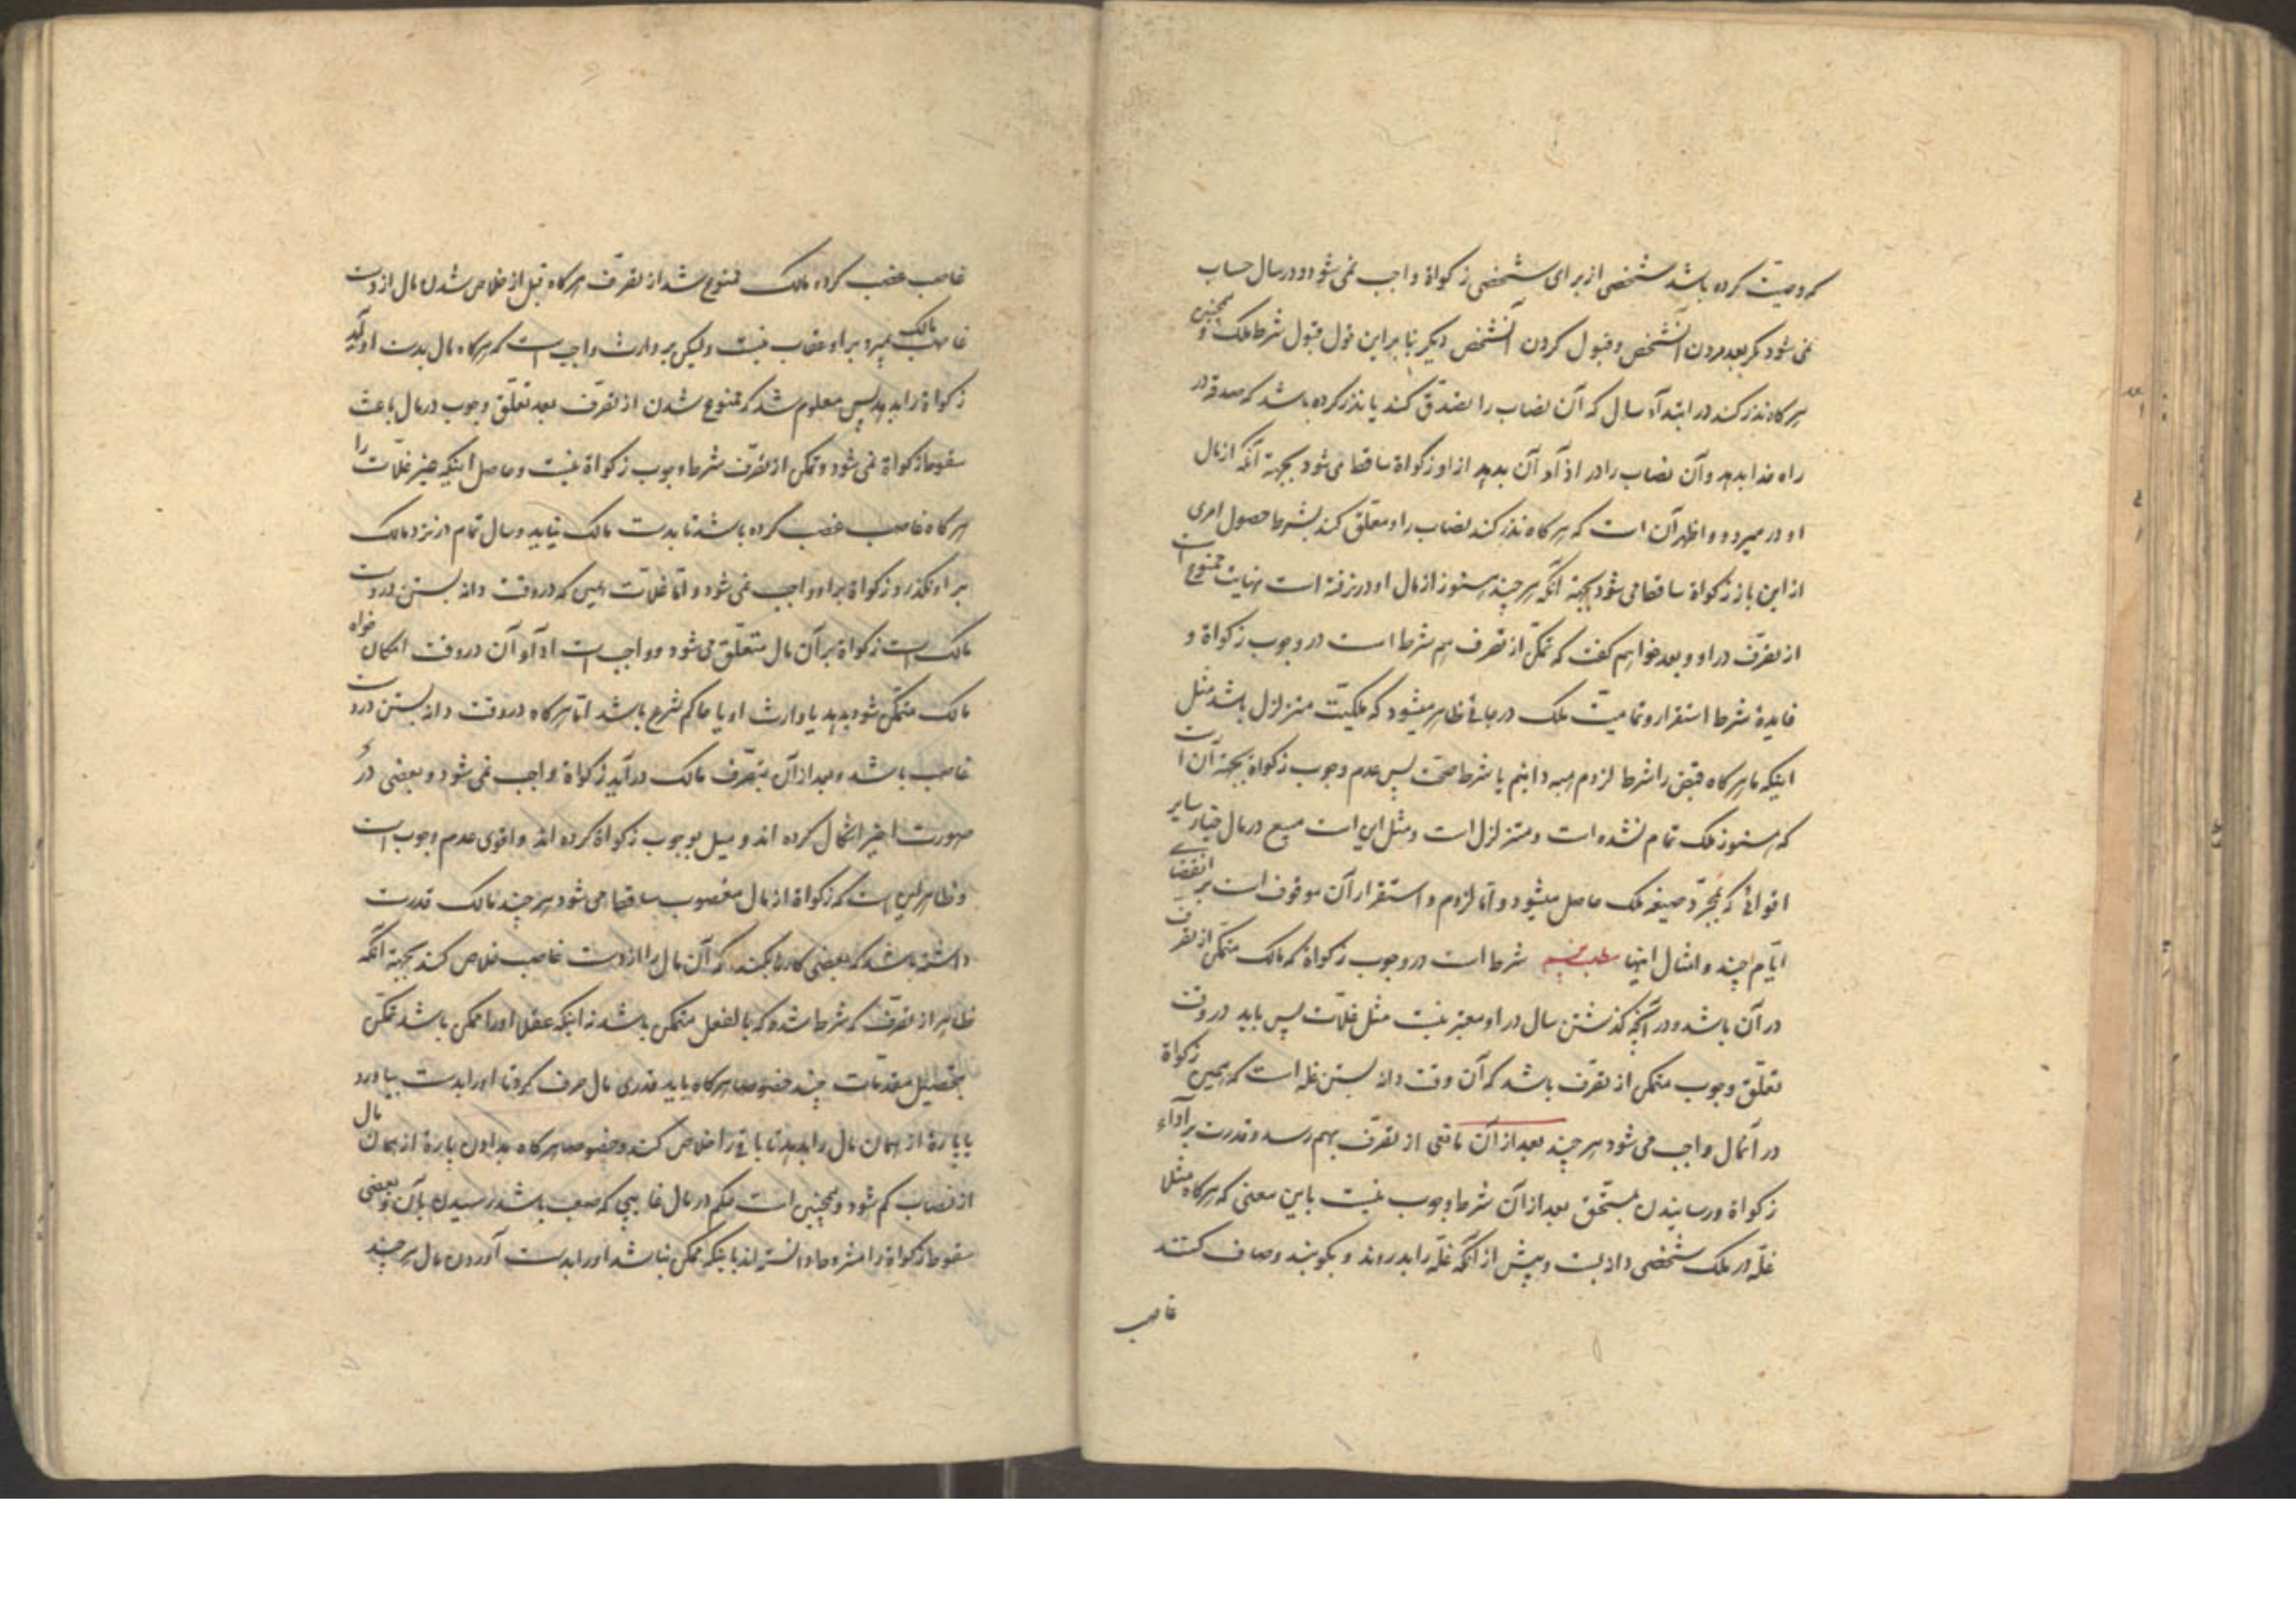 که وصیّت کرده باشد شخصی از برای شخصی زکواة واجب نمی شود و در سال حساب
نمی شود مکر بعد مردن آنشخص و قبول کردن آنشخص دیکر بنا بر این قول قبول شرط ملک و همچنین
هر کاه نذر کند در ابتدآء سال که آن نصاب را تصدّق کند یا نذر کرده باشد که صدقه در
راه خدا بدهد و آن نصاب را در اذآء آن بدهد از او زکواة ساقط می شود بجهة آنکه از مال
او در میرود و اظهر آن است که هر کاه نذر کند نصاب را و معلّق کند بشرط حصول امری
از این باز زکواة ساقط می شود بجهة آنکه هر چند هنوز از مال او در نرفته است نهایت ممنوع است
از تصرّف در او و بعد خواهم کفت که تمکّن از تصرف هم شرط است در وجوب زکواة و
فایدهٔ شرط استقرار و تمامیت ملک در جائی ظاهر میشود که ملکیّت متزلزل باشد مثل
اینکه ما هر کاه قبض را شرط لزوم هبه دانیم یا شرط صحّت پس عدم وجوب زکواة بجهة آن است
که هنوز ملک تمام نشده است و متزلزل است و مثل این است مبیع در مال خیار سایر
اقوائی که بمجرّد صیغه ملک حاصل میشود و امّا لزوم و استقرار آن موقوف است بر انقضای
ایّام چند و امثال اینها شرط است در وجوب زکواة که مالک متمکن از تصرف
در آن باشد و در آنچه کذشتن سال در او معتبر نیست مثل غلّات پس باید در وقت
تعلّق وجوب متمکن از تصرّف باشد که آن وقت دانه بستن غله است که همین زکواة
در آنمال واجب می شود هر چند بعد از آن مانعی از تصرّف بهم رسد و قدرت بر آداء
زکواة و رسانیدن بمستحّق بعد از آن شرط وجوب نیست باین معنی که هر کاه مثلا
غلّه در ملک شخصی دانه بست و پیش از آنکه غلّه را بدروند و بکوبند و صاف کنند
غاصب
غاصب غصب کرده مالک ممنوع شد از تصرّف هر کاه قبل از خلاص شدن مال از دست
غاصب مالک بمیرد بر او عقاب نیست و لیکن بر وارث واجب است که هر کاه مال بدست او آید
زکواة را بدهد پس معلوم شد که ممنوع شدن از تصرّف بعد تعلّق وجوب در مال باعث
سقوط زکواة نمی شود و تمکن از تصرّف شرط وجوب زکواة نیست و حاصل اینکه غیر غلّات را
هر کاه غاصب غصب کرده باشد تا بدست مالک نیاید و سال تمام در نزد مالک
بر او نکذرد زکواة بر او واجب نمی شود و امّا غلّات همین که در وقت دانه بستن در دست
مالک است زکواة بر آن مال متعلّق می شود و واجب است ادآء آن در وقت امکان خواه
مالک متمکّن شود بدهد یا وارث او یا حاکم شرع باشد امّا هر کاه در وقت دانه بستن در دست
غاصب باشد و بعد از آن بتصّرف مالک در آید زکواة واجب نمی شود و بعضی در
صورت اخیر اشکال کرده اند و میل بوجوب زکواة کرده اند و اقوی عدم وجوب است
و ظاهر این است که زکواة از مال مغصوب ساقط می شود هر چند مالک قدرت
داشته باشد که بعضی کارها بکند که آن مال را از دست غاصب خلاص کند بجهة آنکه
ظاهر از تصرّف که شرط شده که بالفعل متمکن باشد نه اینکه عقلا او را ممکن باشد تمکّن
بتحصیل مقدّمات چند خصوصا هر کاه باید قدری مال صرف کرد تا او را بدست بیاورد
یا پارهٔ از همان مال را بدهد تا باقی را خلاص کند و خصوصا هر کاه بدادن پارهٔ از همان مال
از نصاب کم شود و همچنین است حکم در مال غایبی که صعب باشد رسیدن بآن و بعضی
سقوط زکواة را مشروط دانسته اند باینکه ممکن نباشد او را بدست آوردن مال هر چند